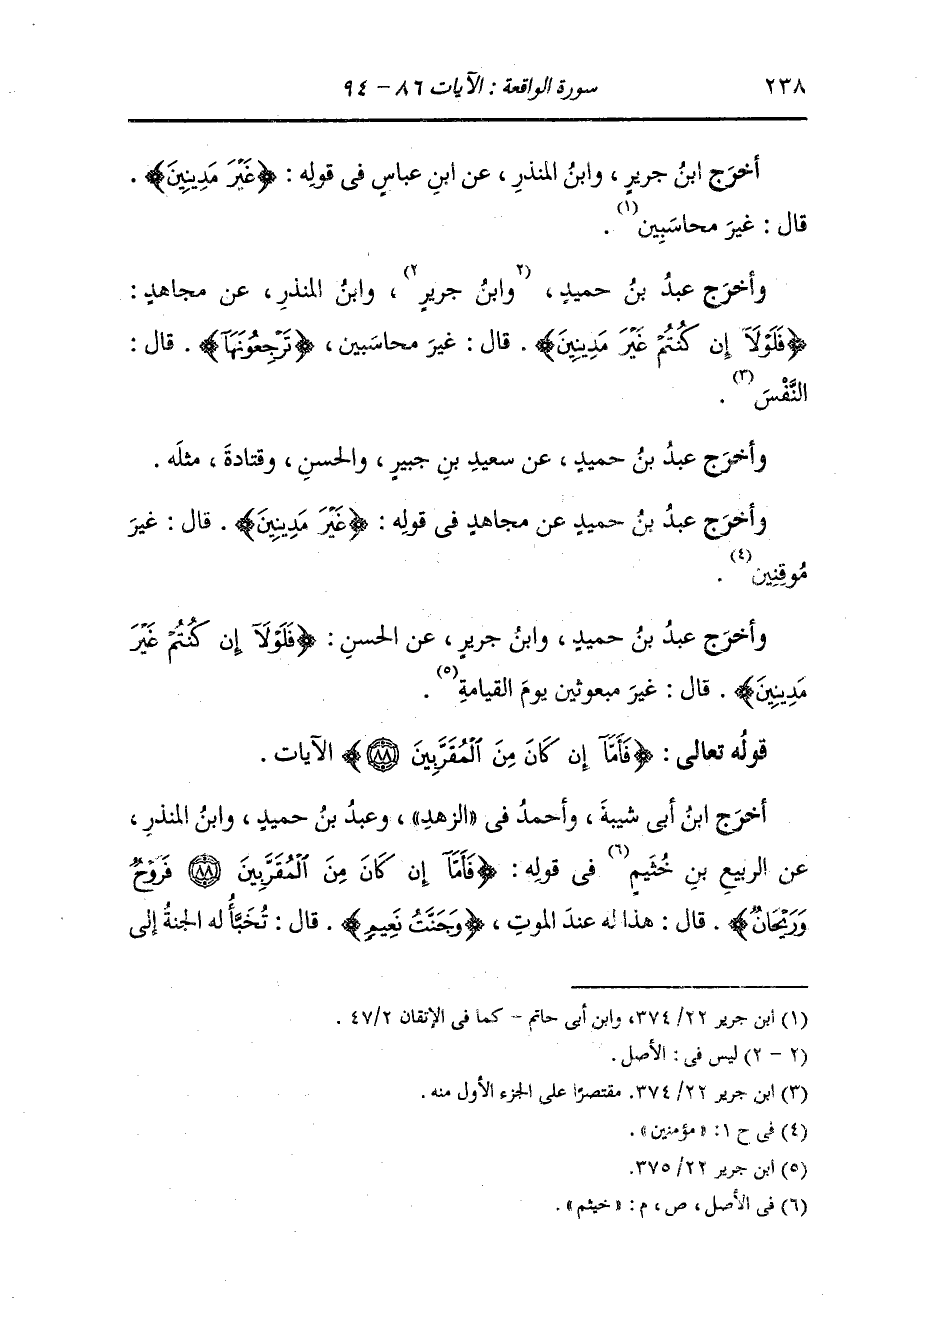 ٢٣٨ سورة الواقعة : الآيات ٨٦ – ٩٤
أخرَج ابنُ جريرٍ ، وابنُ المنذرِ ، عن ابنِ عباسٍ فى قولِه : ﴿غَيْرَ مَدِينِينَ﴾ .
قال : غيرَ محاسَبِين(١) .
وأخرَج عبدُ بنُ حميدٍ ، (٢وابنُ جريرٍ٢) ، وابنُ المنذرِ ، عن مجاهدٍ :
﴿فَلَوْلَآ إِن كُنتُمْ غَيْرَ مَدِينِينَ﴾ . قال : غيرَ محاسَبين ، ﴿تَرْجِعُونَهَآ﴾ . قال :
النَّفْسَ(٣) .
وأخرَج عبدُ بنُ حميدٍ ، عن سعيدِ بنِ جبيرٍ ، والحسنِ ، وقتادةَ ، مثلَه .
وأخرَج عبدُ بنُ حميدٍ عن مجاهدٍ فى قولِه : ﴿غَيْرَ مَدِينِينَ﴾ . قال : غيرَ
مُوقِنِين(٤) .
وأخرَج عبدُ بنُ حميدٍ ، وابنُ جريرٍ ، عن الحسنِ : ﴿فَلَوْلَآ إِن كُنتُمْ غَيْرَ
مَدِينِينَ﴾ . قال : غيرَ مبعوثين يومَ القيامةِ(٥) .
قولُه تعالى : ﴿فَأَمَّآ إِن كَانَ مِنَ ٱلْمُقَرَّبِينَ ٨٨﴾ الآيات .
أخرَج ابنُ أبى شيبةَ ، وأحمدُ فى «الزهدِ» ، وعبدُ بنُ حميدٍ ، وابنُ المنذرِ ،
عن الربيعِ بنِ خُثَيمٍ(٦) فى قولِه : ﴿فَأَمَّآ إِن كَانَ مِنَ ٱلْمُقَرَّبِينَ ٨٨ فَرَوْحٌ
وَرَيْحَانٌ﴾ . قال : هذا له عندَ الموتِ ، ﴿وَجَنَّتُ نَعِيمٍ﴾ . قال : تُخَبَّأُ له الجنةُ إلى
(١) ابن جرير ٢٢/ ٣٧٤، وابن أبى حاتم – كما فى الإتقان ٤٧/٢ .
(٢ – ٢) ليس فى : الأصل .
(٣) ابن جرير ٢٢/ ٣٧٤. مقتصرًا على الجزء الأول منه .
(٤) فى ح ١: «مؤمنين» .
(٥) ابن جرير ٢٢/ ٣٧٥.
(٦) فى الأصل ، ص ، م : «خيثم» .